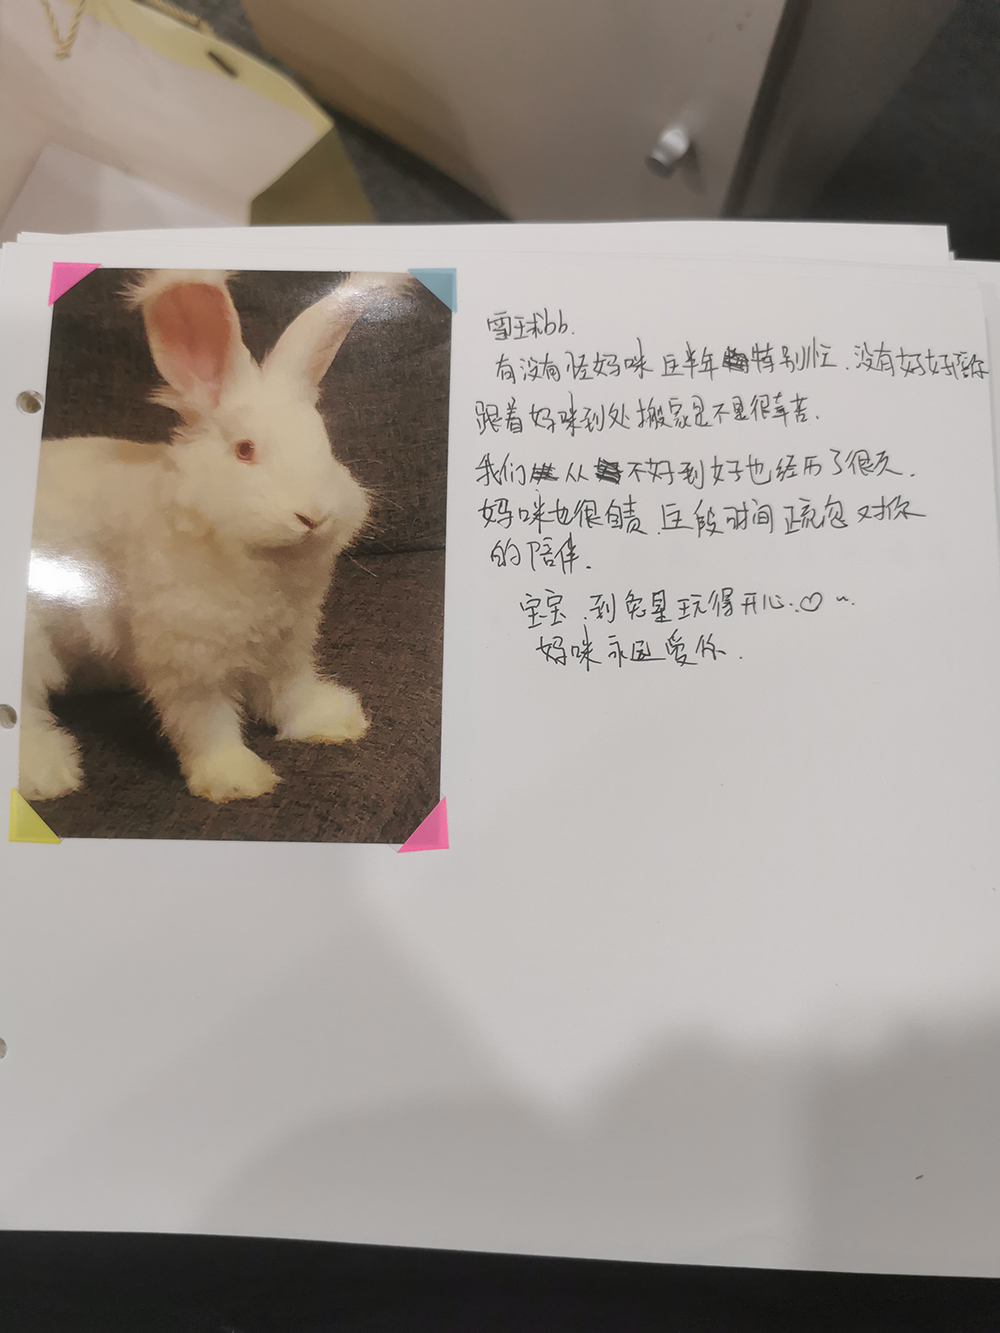 雪球bb.
有没有怪妈咪这半年特别忙.没有好好陪你
跟着妈咪到处搬家是不是很辛苦.
我们从不好到好也经历了很久.
妈咪也很自责.这段时间疏忽对你
的陪伴.
宝宝.到兔星玩得开心.♡~.
妈咪永远爱你.